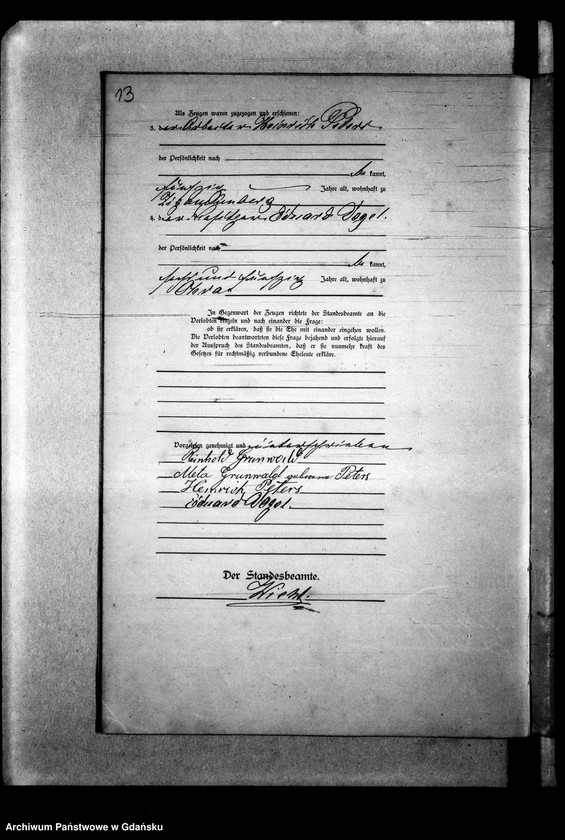 13
Als Zeugen waren zugezogen und erschienen:
3. der Arbeiter Heinrich Peters
der Persönlichkeit nach
be kannt,
fünfzig Jahre alt, wohnhaft zu
Zigankenberg
4. der Besitzer Eduard Vogel.
der Persönlichkeit nach
be kannt,
sechsundfünfzig Jahre alt, wohnhaft zu
Ohra.
In Gegenwart der Zeugen richtete der Standesbeamte an die
Verlobten einzeln und nach einander die Frage:
ob sie erklären, daß sie die Ehe mit einander eingehen wollen.
Die Verlobten beantworteten diese Frage bejahend und erfolgte hierauf
der Ausspruch des Standesbeamten, daß er sie nunmehr kraft des
Gesetzes für rechtmäßig verbundene Eheleute erkläre.
Vorgelesen, genehmigt und unterschrieben
Reinhold Grunwald
Meta Grunwald geborene Peters
Heinrich Peters
Eduard Vogel.
Der Standesbeamte.
Archiwum Państwowe w Gdańsku